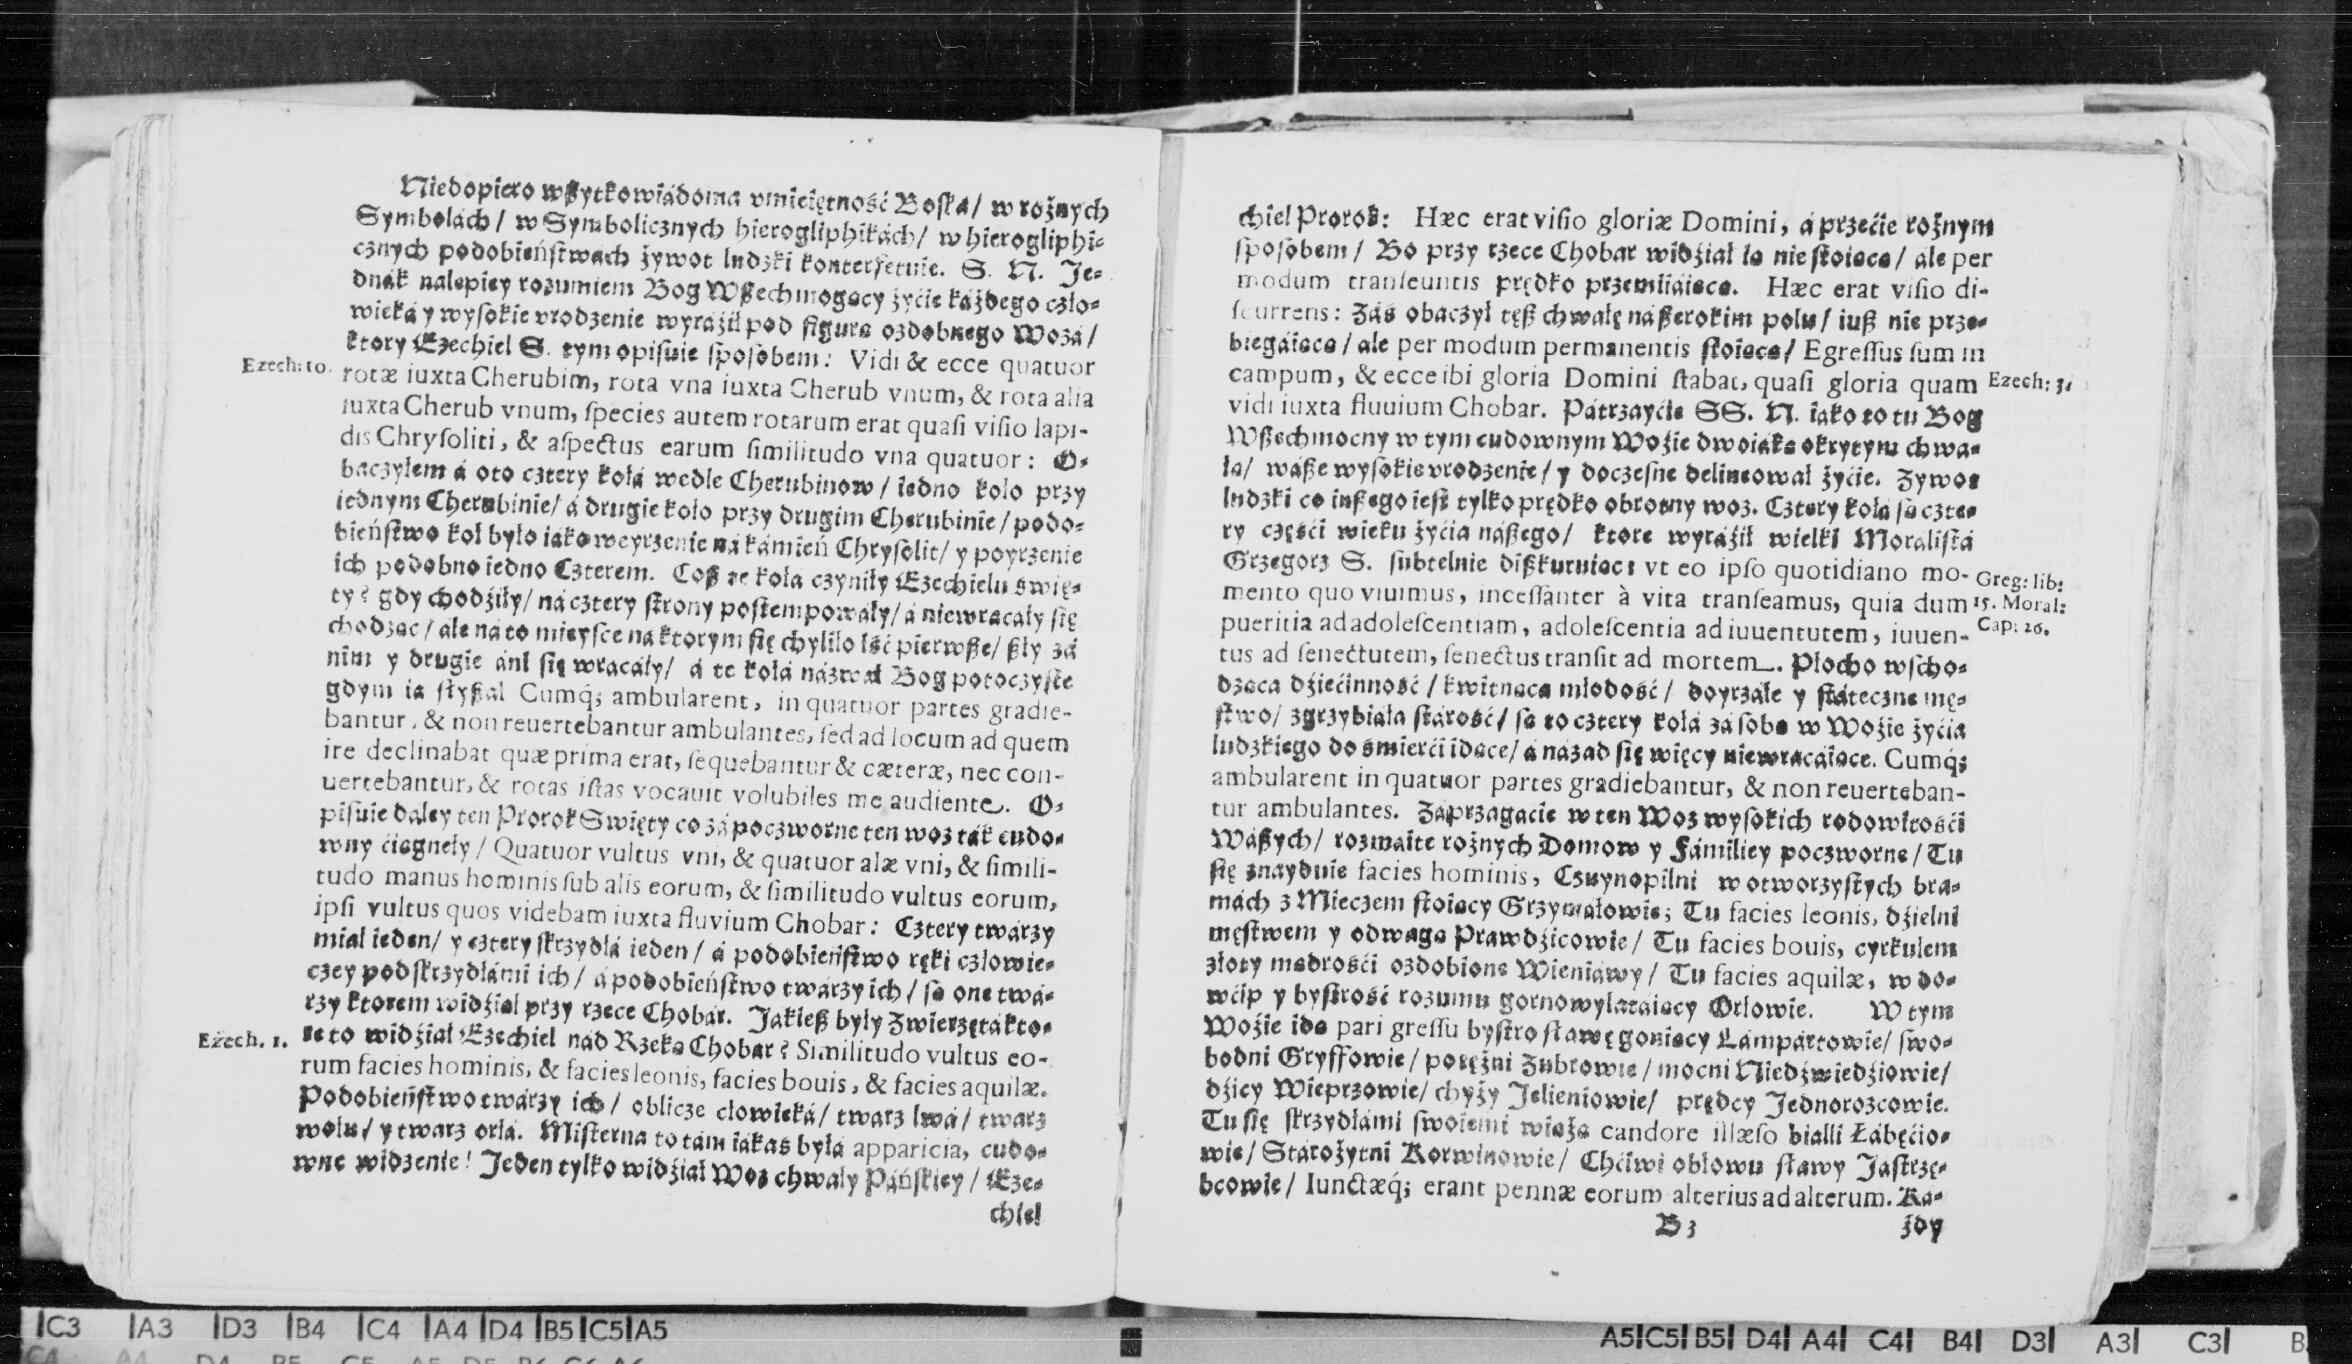 Niedopiero wßytkowiádoma vmieiętność Boſka/ w rożnych
Symbolách/ w Symbolicznych hierogliphikách/ w hierogliphi⸗
cznych podobieńſtwách żywot ludzki konterfetuie. S. N. Je⸗
dnák nalepiey rozumiem Bog Wßechmogący żyćie káżdego czło⸗
wieká y wyſokie vrodzenie wyráźił pod figurą ozdobnego Wozá/
ktory Ezechiel S. tym opiſuie ſpoſobem: Vidi & ecce quatuor
Ezech: 10. rotæ iuxta Cherubim, rota vna iuxta Cherub vnum, & rota alia
iuxta Cherub vnum, ſpecies autem rotarum erat quaſi viſio lapi-
dis Chryſoliti, & aſpectus earum ſimilitudo vna quatuor: O⸗
baczyłem á oto cztery kołá wedle Cherubinow/ iedno koło przy
iednym Cherubinie/ á drugie koło przy drugim Cherubinie/ podo⸗
bieńſtwo koł było iáko weyrzenie ná kámień Chryſolit/ y poyrzenie
ich podobno iedno Czterem. Coß te kołá czyniły Ezechielu świę⸗
ty? gdy chodźiły/ ná cztery ſtrony poſtempowáły/ á niewracáły ſię
chodząc/ ale ná to mieyſce na ktorym ſię chyliło iść pierwße/ ßły zá
nim y drugie áni ſię wracáły/ á te kołá názwał Bog potoczyſte
gdym ia ſłyßał Cumq́; ambularent, in quatuor partes gradie-
bantur, & non reuertebantur ambulantes, ſed ad locum ad quem
ire declinabat quæ prima erat, ſequebantur & cæteræ, nec con-
uertebantur, & rotas iſtas vocauit volubiles me audiente. O⸗
piſuie daley ten Prorok Swięty co zá poczworne ten woz ták cudo⸗
wny ćiągnęły/ Quatuor vultus vni, & quatuor alæ vni, & ſimili-
tudo manus hominis ſub alis eorum, & ſimilitudo vultus eorum,
ipſi vultus quos videbam iuxta fluvium Chobar: Cztery twarzy
miał ieden/ y cztery ſkrzydłá ieden/ á podobieńſtwo ręki człowie⸗
czey pod ſkrzydłámi ich/ á podobieńſtwo twárzy ich/ ſą one twá⸗
rzy ktorem widźiał przy rzece Chobar. Jakieß były Zwierzętá kto⸗
Ezech. 1. re to widźiał Ezechiel nád Rzeką Chobar? Similitudo vultus eo-
rum facies hominis, & facies leonis, facies bouis, & facies aquilæ.
Podobieńſtwo twárzy ich/ oblicze cłowieká/ twarz lwá/ twarz
wołu/ y twarz orłá. Miſterna to tám iákas byłá apparicia, cudo⸗
wne widzenie! Jeden tylko widźiał Woz chwały Páńſkiey/ Eze⸗
chiel
chiel Prorok: Hæc erat viſio gloriæ Domini, á przećie rożnym
ſpoſobem/ Bo przy rzece Chobar widźiał ią nie ſtoiącą/ ale per
modum tranſeuntis prędko przemiiáiącą. Hæc erat viſio di-
ſcurrens: Záś obaczył tęß chwałę ná ßerokim polu/ iuß nie prze⸗
biegáiącą/ ale per modum permanentis ſtoiącą/ Egreſſus ſum in
campum, & ecce ibi gloria Domini ſtabat, quaſi gloria quam Ezech: 3.
vidi iuxta fluuium Chobar. Pátrzayćie SS. N. iáko to tu Bog
Wßechmocny w tym cudownym Woźie dwoiáką okrytym chwa⸗
łą/ wáße wyſokie vrodzenie/ y doczeſne delineował żyćie. Żywot
ludzki co inßego ieſt tylko prędko obrotny woz. Cztery kołá ſą czte⸗
ry częśći wieku żyćia náßego/ ktore wyráźił wielki Moraliſtá
Grzegorz S. ſubtelnie dißkuruiąc: vt eo ipſo quotidiano mo- Greg: lib:
mento quo viuimus, inceſſanter à vita tranſeamus, quia dum 15. Moral:
pueritia ad adoleſcentiam, adoleſcentia ad iuuentutem, iuuen- Cap: 26.
tus ad ſenectutem, ſenectus tranſit ad mortem. Płocho wſcho⸗
dząca dźiećinność/ kwitnąca młodość/ doyrzáłe y ſtáteczne mę⸗
ſtwo/ zgrzybiáła ſtárość/ ſą to cztery kołá zá ſobą w Woźie żyćia
ludzkiego do śmierći idące/ á názad ſię więcy niewracáiące. Cumq́;
ambularent in quatuor partes gradiebantur, & non reuerteban-
tur ambulantes. Záprzągacie w ten Woz wyſokich rodowitośći
Wáßych/ rozmáite rożnych Domow y Fámiliey poczworne/ Tu
ſię znayduie facies hominis, Czuynopilni w otworzyſtych bra⸗
mách z Mieczem ſtoiący Grzymałowie; Tu facies leonis, dźielni
męſtwem y odwagą Prawdźicowie/ Tu facies bouis, cyrkułem
złoty mądrośći ozdobione Wieniáwy/ Tu facies aquilæ, w do⸗
wćip y byſtrość rozumu gornowylatáiący Orłowie. W tym
Woźie idą pari greſſu byſtro ſławę goniący Lámpártowie/ ſwo⸗
bodni Gryffowie/ potężni Żubrowie/ mocni Niedźwiedźiowie/
dźicy Wieprzowie/ chyży Jelieniowie/ prędcy Jednorozcowie.
Tu ſię ſkrzydłámi ſwoiemi wiążą candore illæſo bialli Łábęćio⸗
wie/ Stárożytni Korwinowie/ Chćiwi obłowu ſławy Jaſtrzę⸗
bcowie/ Iunctæq́; erant pennæ eorum alterius ad alterum. Ka⸗
B3 żdy
C3 A3 D3 B4 C4 A4 D4 B5 C5 A5
A5 C5 B5 D4 A4 C4 B4 D3 A3 C3